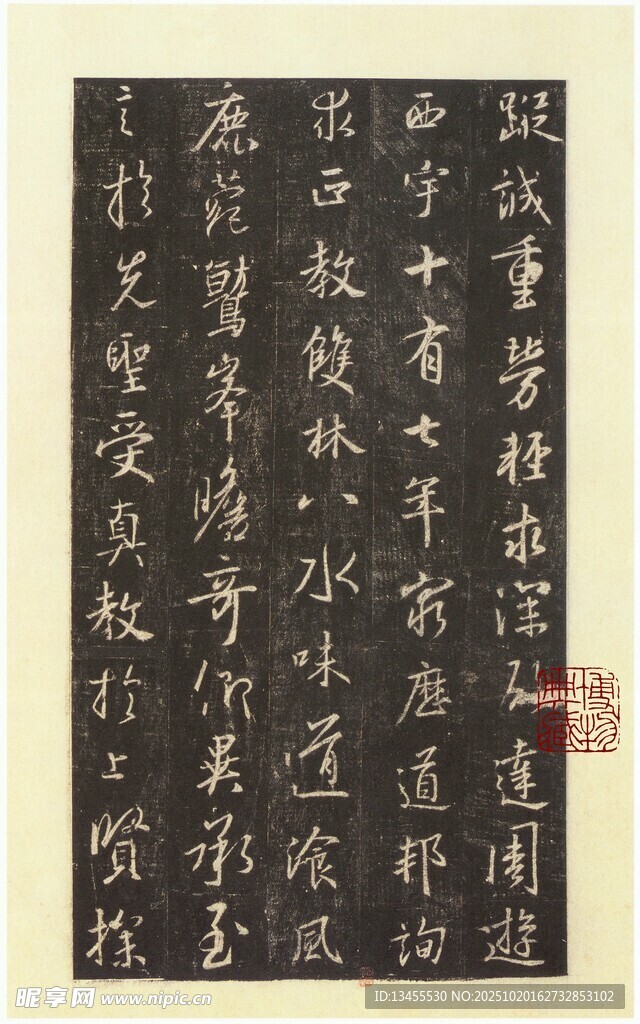 蹤誠重勞輕求深欲達周遊
西宇十有七年窮歷道邦詢
求正教雙林八水味道飡風
鹿菀鷲峯瞻奇仰異承至
言於先聖受真教於上賢探
博物典藏
昵享网 www.nipic.cn
ID:13455530 NO:20251020162732853102